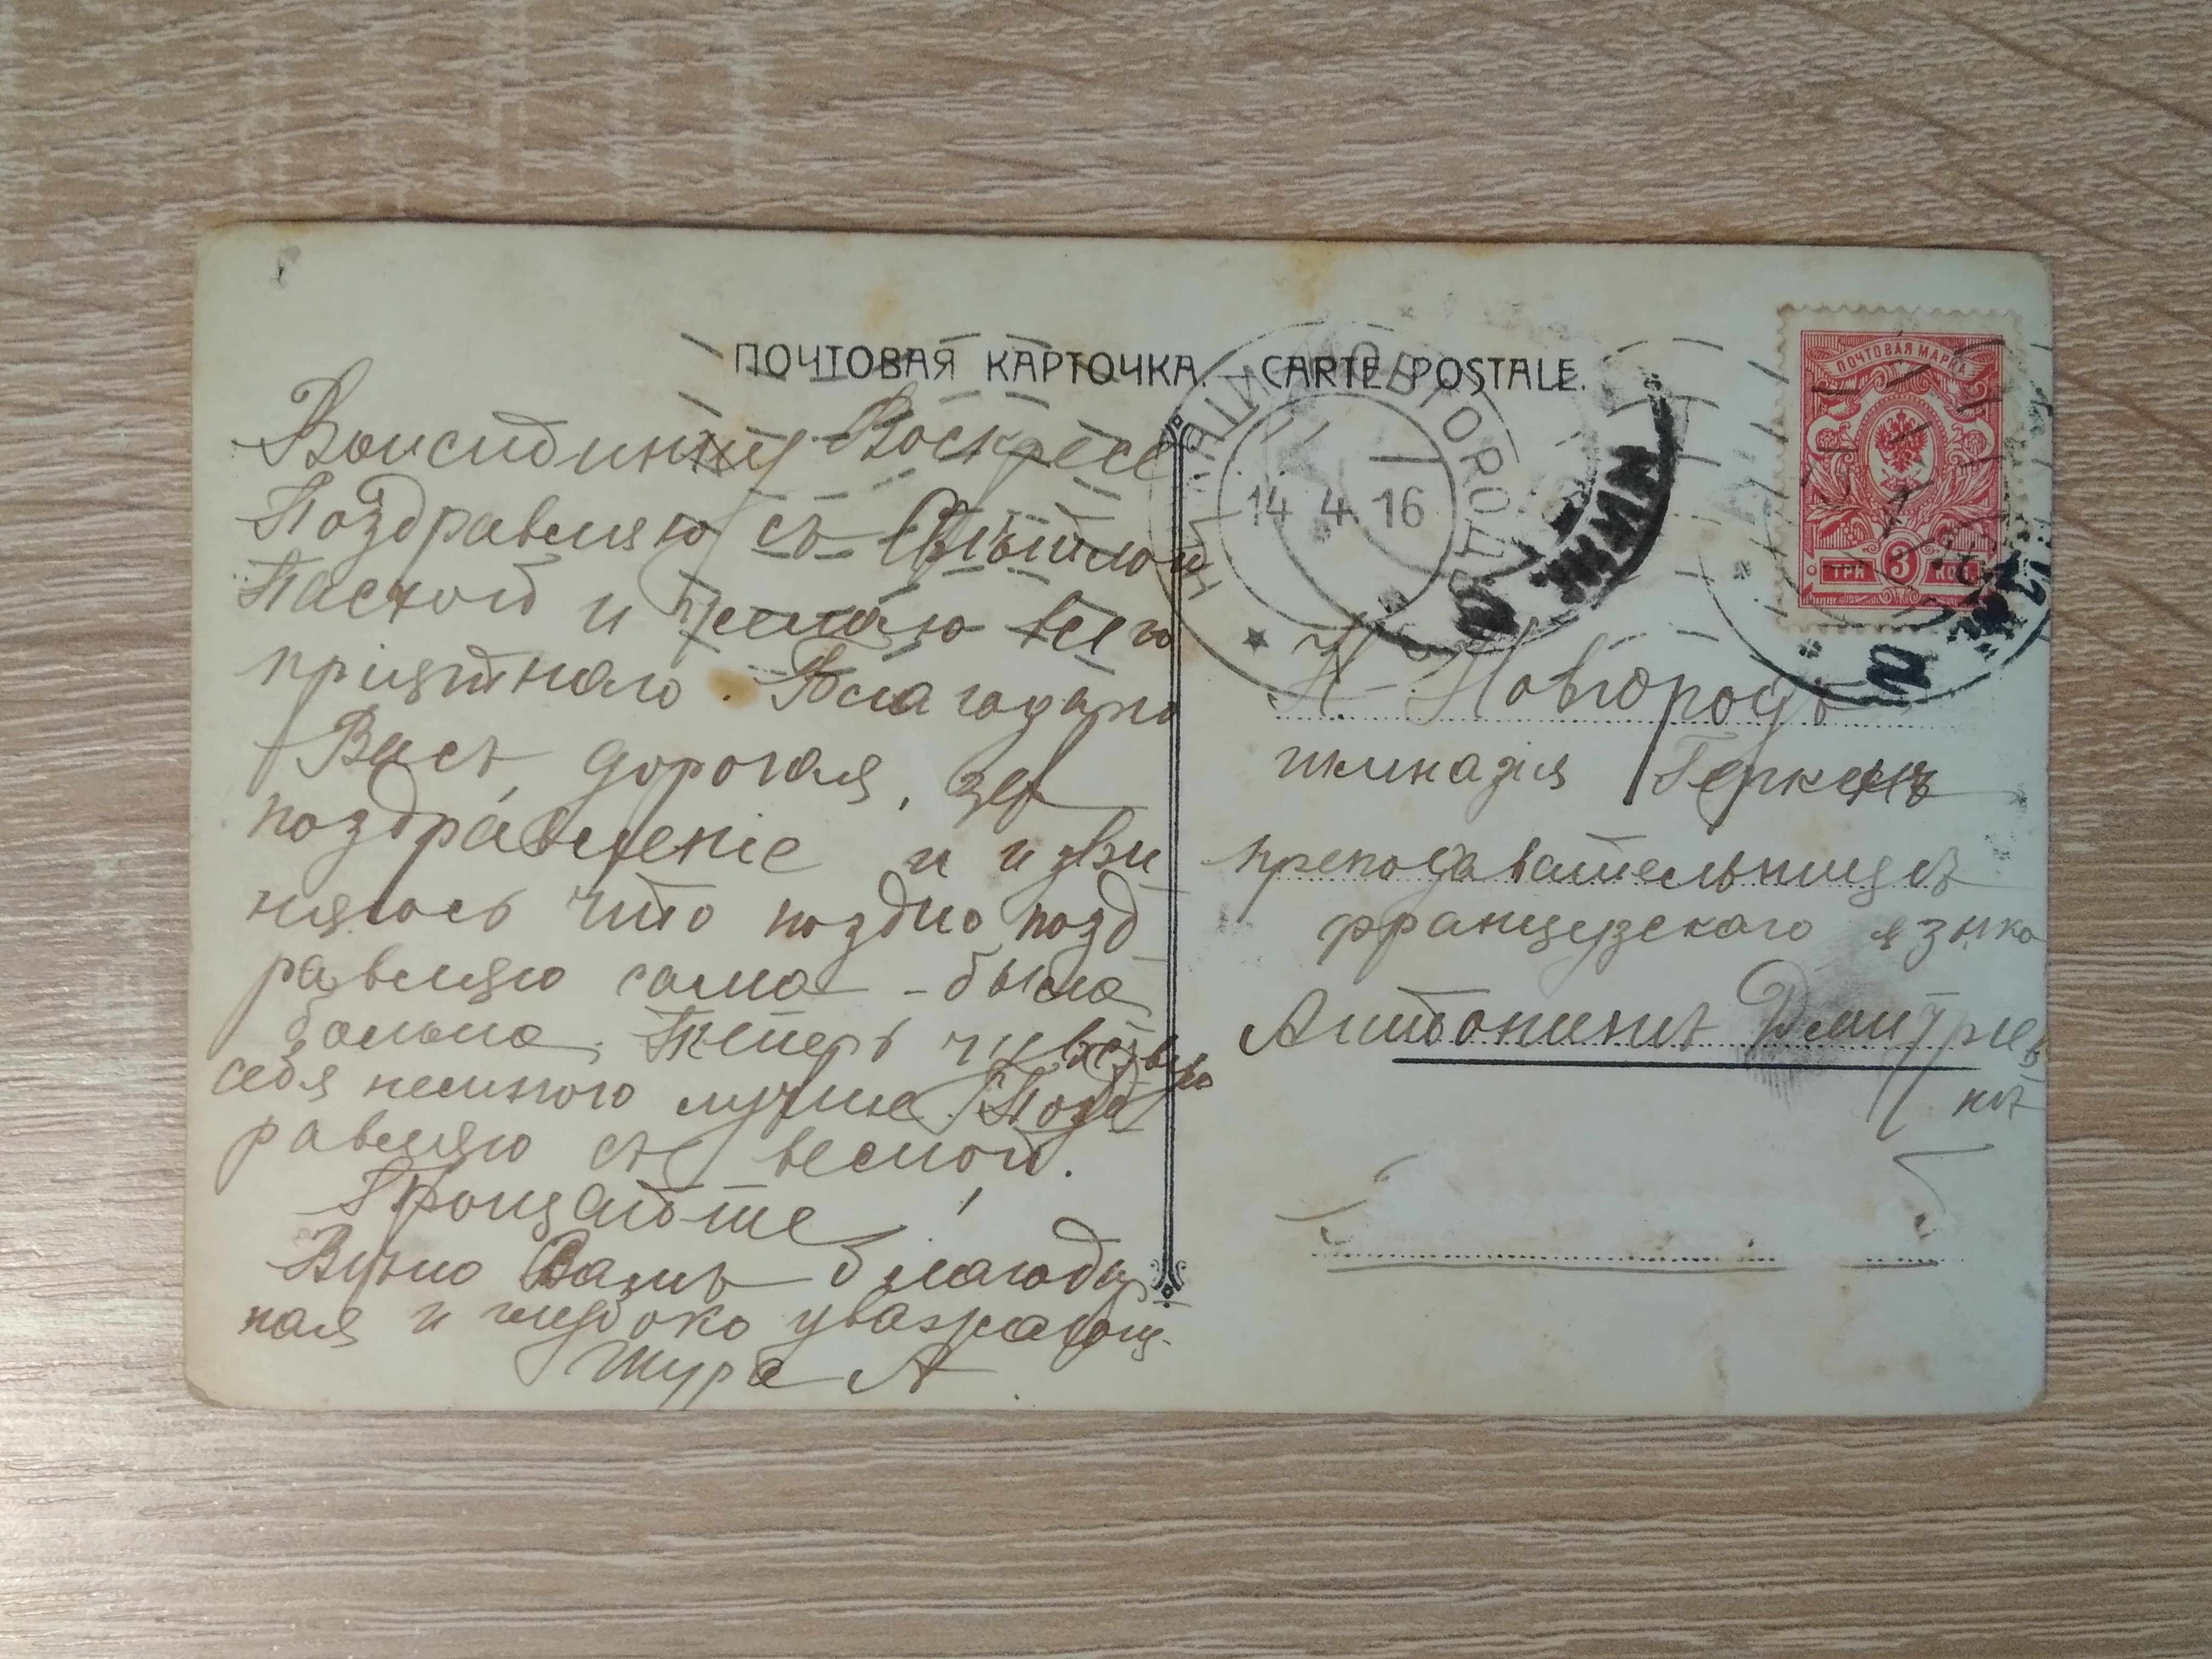 ПОЧТОВАЯ КАРТОЧКА. — CARTE POSTALE.
ПОЧТОВАЯ МАРКА
ТРИ 3 КОП
14 4 16
Воистинну Воскресе
Поздравляю съ Свѣтлой
Пасхой и желаю всего
пріятнаго. Благодарю
Васъ, дорогая, за
поздравленіе и изви
няюсь что поздно позд
равляю сама – была
больна. Теперь чувствую
себя немного лучше. Позд
равляю съ весной.
Прощайте!
Вѣчно Вамъ благодар
ная и глубоко уважающ.
Шура А
Н-Новгородъ
гимназія Геркенъ
преподавательницѣ
французскаго языка
Антонинѣ Дмитрiев
нѣ